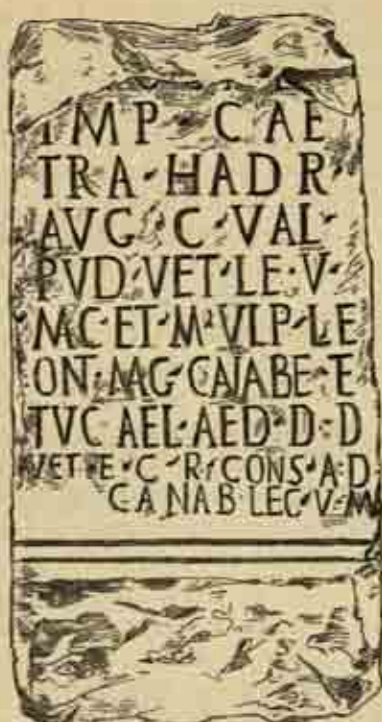 IMP · CAE
TRA · HADR ·
AVG · C · VAL ·
PVD · VET · LE · V ·
MC · ET · M · VLP · LE
ON · MAG · CANABE · E
TVC AEL · AED · D · D
VET · E · C · R · CONS · A · D
CANAB · LEC · V · M